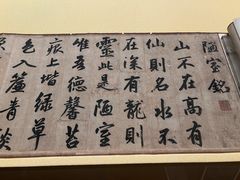 陋室銘
山不在高有
仙則名水不
在深有龍則
靈此是陋室
惟吾德馨苔
痕上堦綠草
色入簾青談